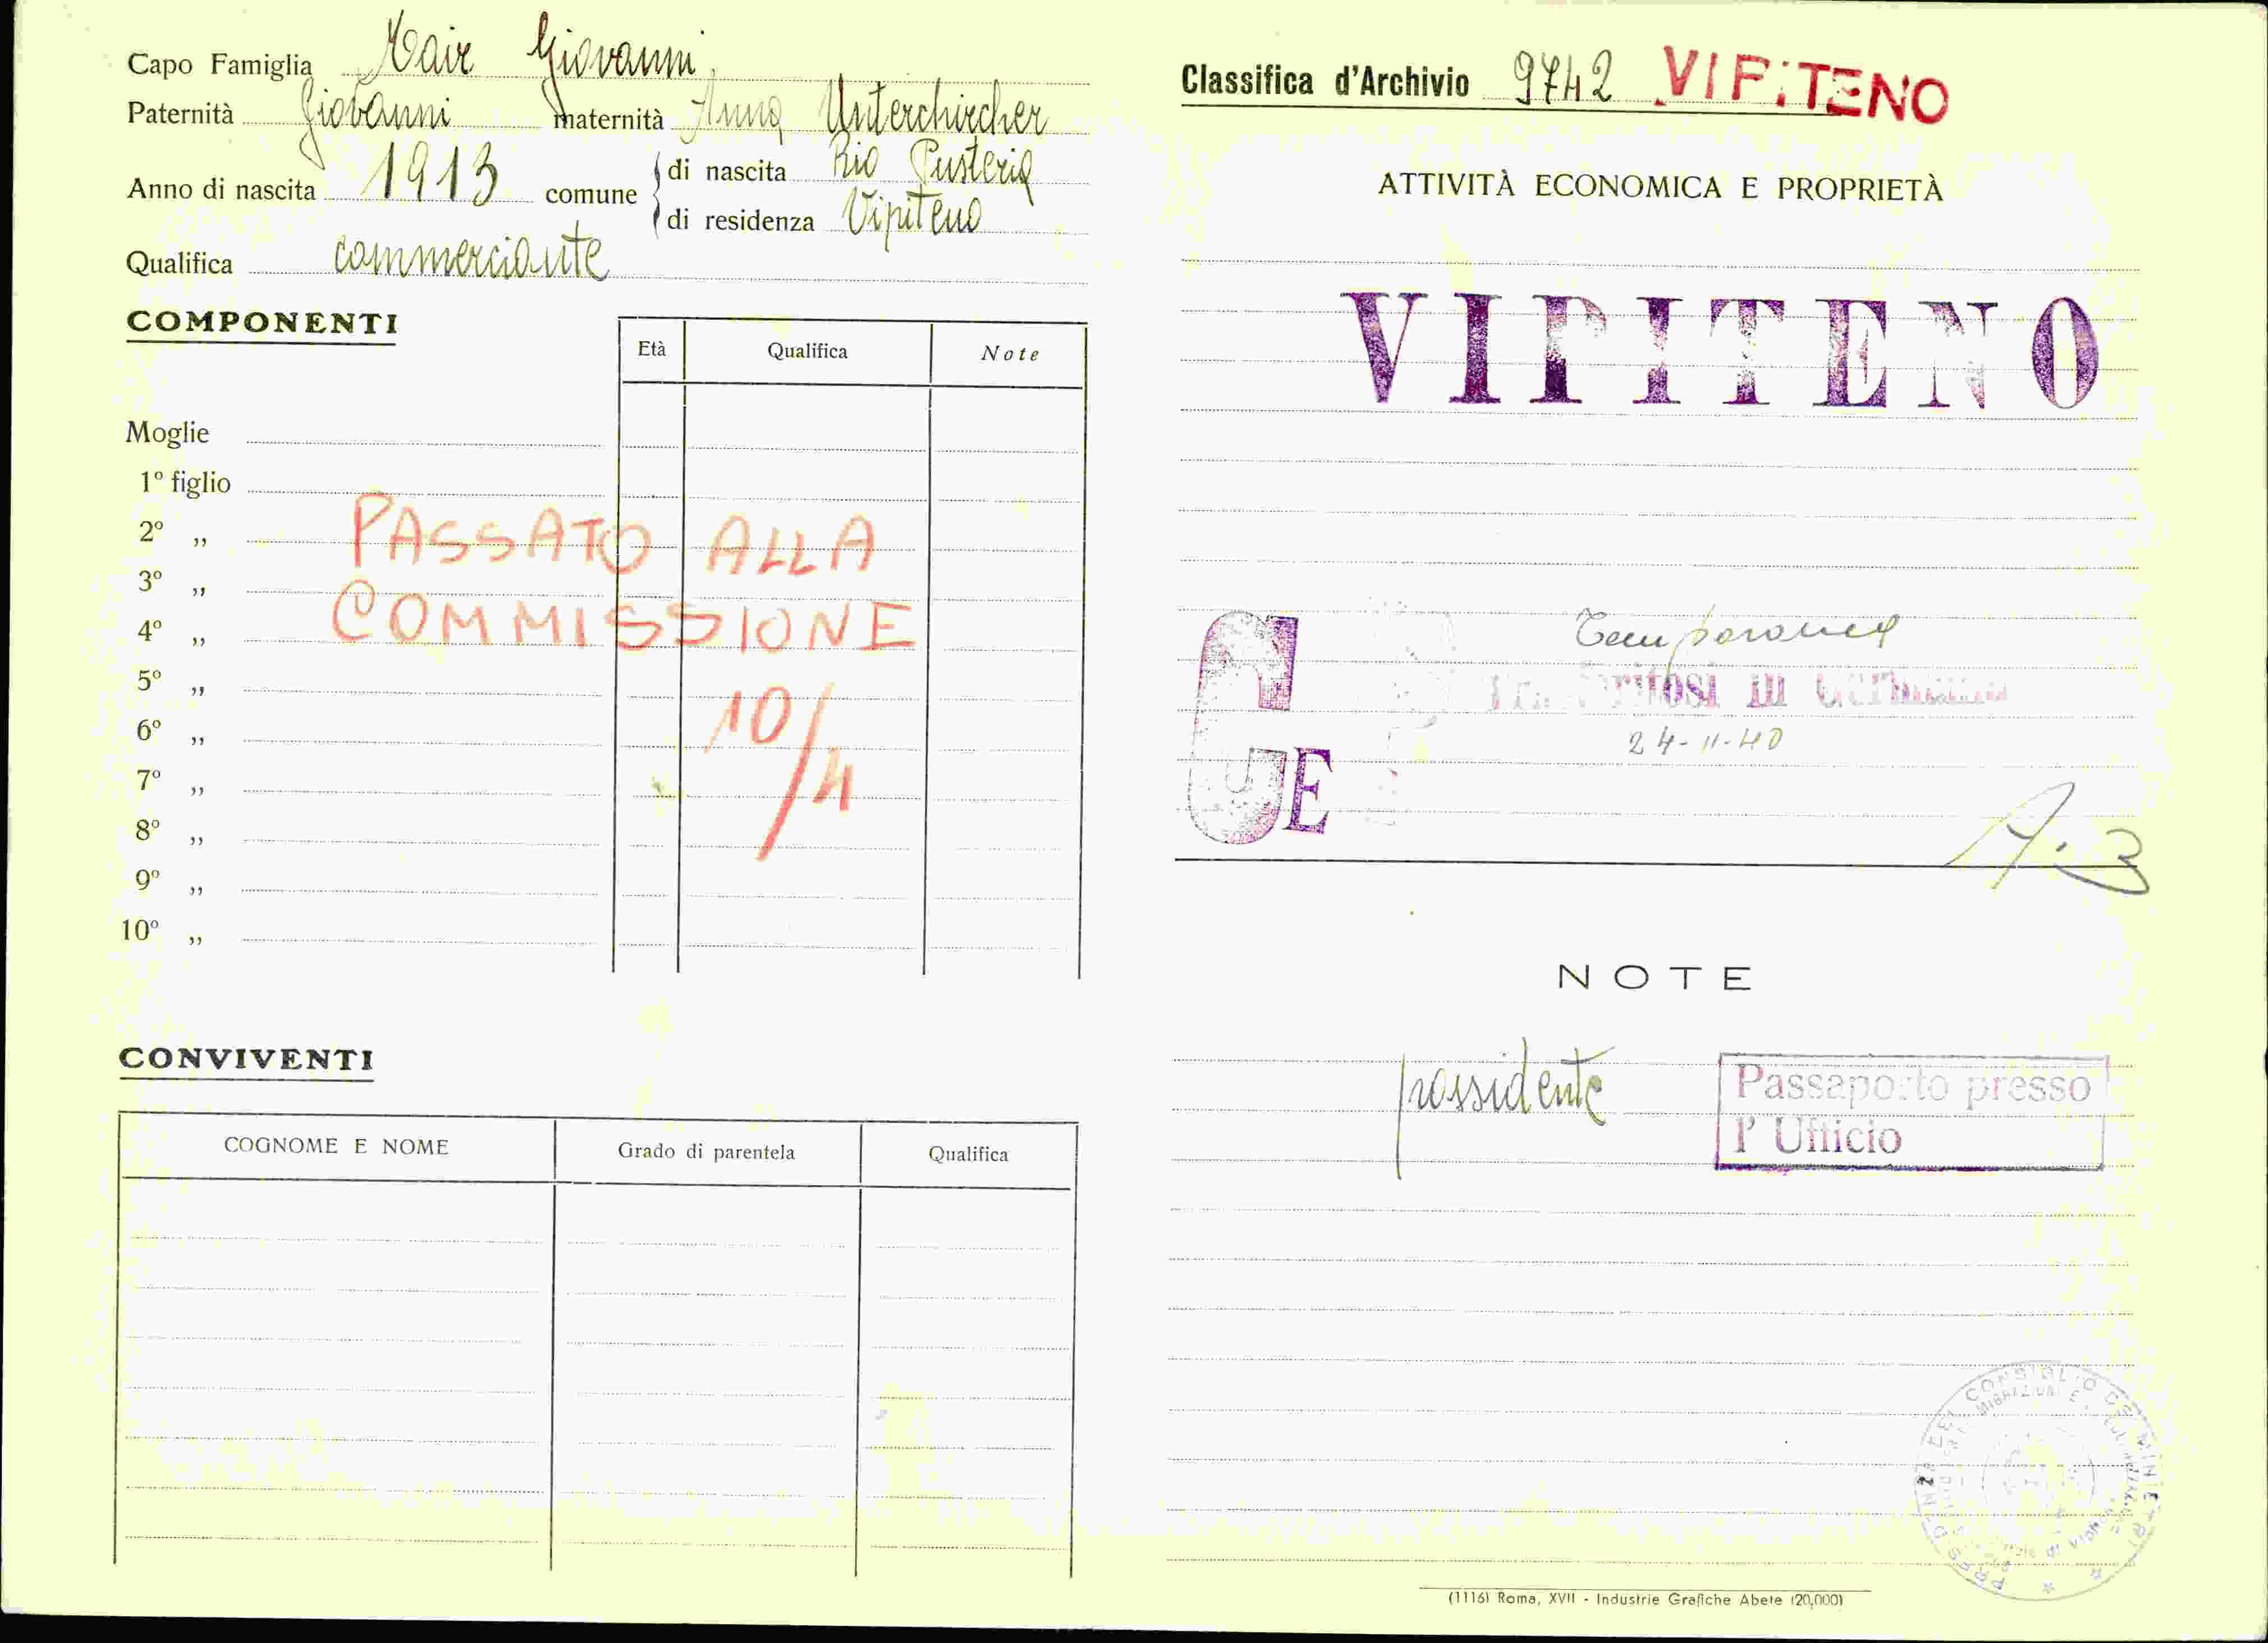 Capo Famiglia Mair Giovanni
Paternità Giovanni maternità Anna Unterchircher
Anno di nascita 1913 comune di nascita Rio Pusteria
di residenza Vipiteno
Qualifica commerciante
COMPONENTI
Età Qualifica Note
Moglie
1º figlio
2º ,,
3º ,,
4º ,,
5º ,,
6º ,,
7º ,,
8º ,,
9º ,,
10º ,,
PASSATO ALLA
COMMISSIONE
10/4
CONVIVENTI
COGNOME E NOME Grado di parentela Qualifica
Classifica d'Archivio 9742 VIPITENO
ATTIVITÀ ECONOMICA E PROPRIETÀ
VIPITENO
Temporanea
in Germania
24-11-40
E
A.3
NOTE
possidente
Passaporto presso
l' Ufficio
(1116) Roma, XVII - Industrie Grafiche Abete (20,000)